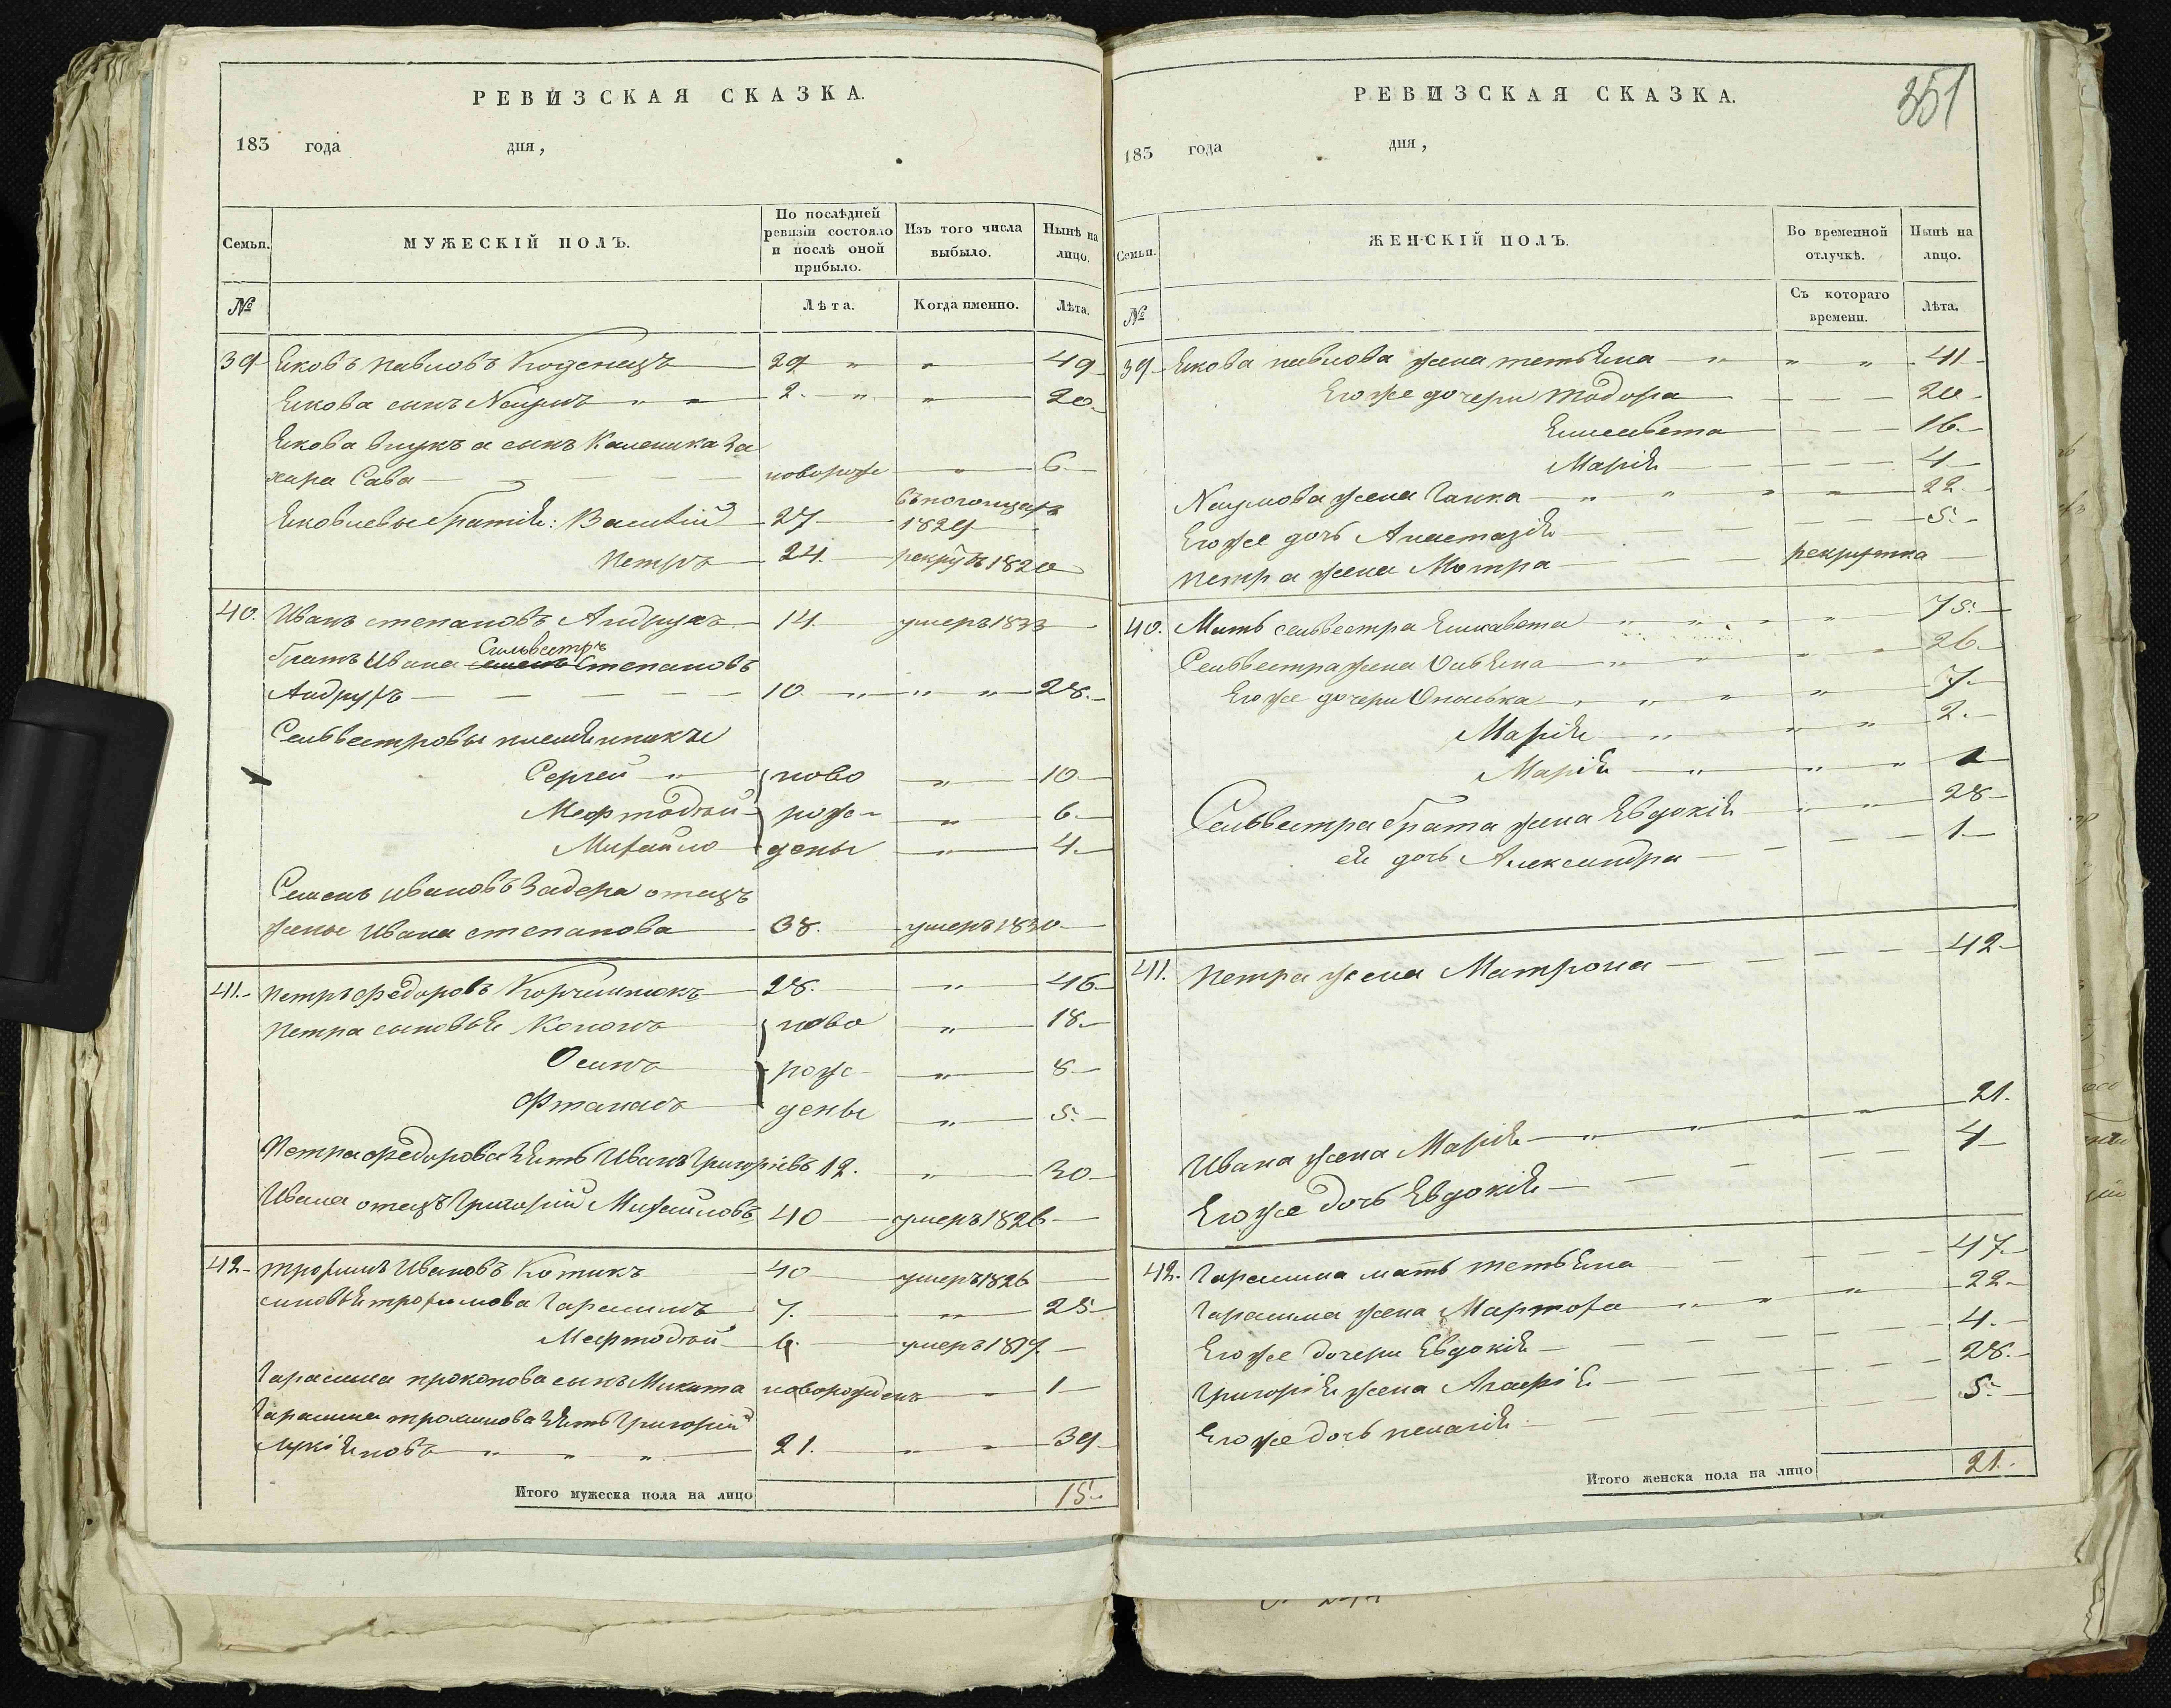 РЕВИЗСКАЯ СКАЗКА.
183 года дня,
Семьи. МУЖЕСКІЙ ПОЛЪ. По послѣдней ревизіи состояло и послѣ оной прибыло. Изъ того числа выбыло. Нынѣ на лицо.
№ Лѣта. Когда именно. Лѣта.
39 Яковъ павловъ 29 " " 49
Якова сынъ Наумъ " " 2. " " 20
Якова внукъ а сынъ Каленика За
хара Сава новорож " 6
Яковлевы братія: Василій 27 1829
петръ 24. рекрутъ 1820
40. Иванъ степановъ Андрухъ 14 умеръ 1833
братъ Ивана Сильвестръ степановъ
Андрухъ 10 " " " 28.
Сельвестровы племянники
Сергей " ново " 10
Мефтодій рож " 6
Михайло дены " 4
Семенъ Ивановъ Задера отецъ
жены Ивана степанова 38. умеръ 1830
41. петръ федоровъ 28. " 46
петра сыновья Кононъ ново " 18
Осипъ рож " 8
Фтанасъ дены " 5.
петра федорова зять Иванъ Григоріевъ 12. " 30
Ивана отецъ Григорій Михайловъ 40 умеръ 1826
42 трохимъ Ивановъ Котикъ 40 умеръ 1826
синовья трохимова Гарасимъ 7. " 25
Мефтодій 6. умеръ 1817
Гарасима прокопова сынъ Микита новорожденъ " 1
Гарасима трохимова зять Григорій
Лукіяновъ " " " 21. " " 39
Итого мужеска пола на лицо 15.
351
РЕВИЗСКАЯ СКАЗКА.
183 года дня,
Семьи. ЖЕНСКІЙ ПОЛЪ. Во временной отлучкѣ. Нынѣ на лицо.
№ Съ котораго времени. Лѣта.
39 Якова павлова жена тетьяна " " " 41
Его же дочери тодора 20
Елисавета 16
Марія 4
Наумова жена Ганка " " " " 22
Его же дочь Анастазія 5.
петра жена Мотра рекрутка
40. Мать сельвестра Елисавета " " " " 75.
Сельвестра жена Ульяна " " " 26
Его же дочери " " " " 7
Марія " " " 2.
Марія " " " 1
Сельвестра брата жена Евдокія " " 28
ея дочь Александра 1
41. петра жена Матрона 42
Ивана жена Марія " " " " 21.
Его же дочь Евдокія 4
42. Гарасима мать тетьяна 47
Гарасима жена Мартоха " " " 22
Его же дочери Евдокія 4.
Григорія жена Агафія 28.
Его же дочь пелагія 5.
Итого женска пола на лицо 21.